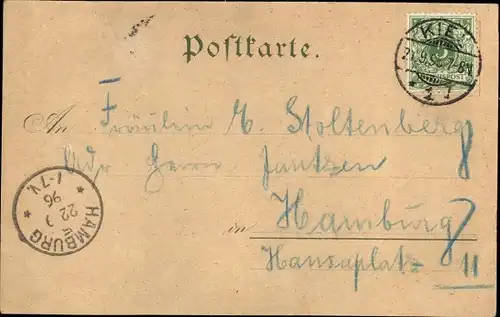 Postkarte.
KIEL
5
An Fräulein E. Stoltenberg
Adr Herrn Jantzen
in Hamburg
Hansaplatz 11
HAMBURG
22 9
96